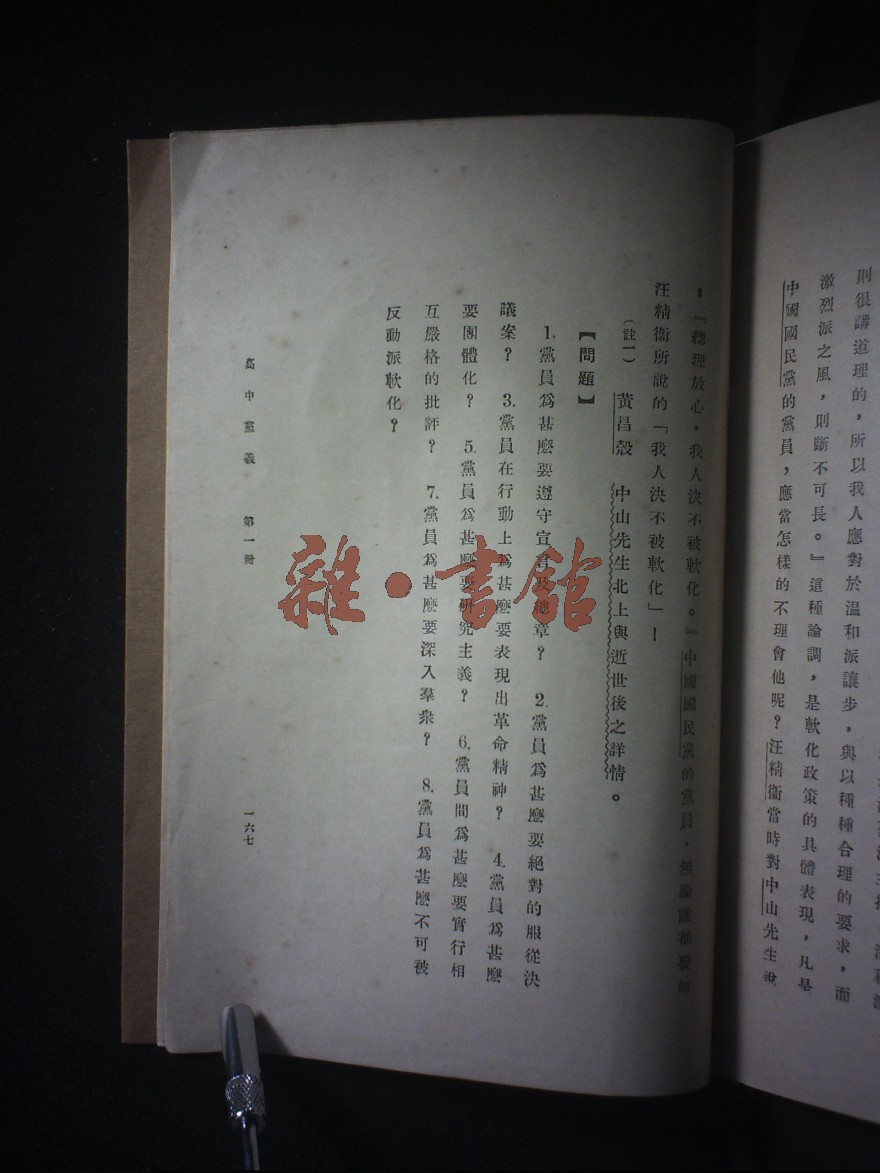 則很講道理的，所以我人應對於溫和派讓步，與以種種合理的要求，而
激烈派之風，則斷不可長。』這種論調，是軟化政策的具體表現，凡是
中國國民黨的黨員，應當怎樣的不理會他呢？汪精衞當時對中山先生說
：『總理放心，我人決不被軟化。』中國國民黨的黨員，無論誰都要如
汪精衞所說的「我人決不被軟化」！
（註一） 黃昌穀 中山先生北上與逝世後之詳情。
【問題】
1. 黨員爲甚麼要遵守宣言及總章？ 2. 黨員爲甚麼要絕對的服從決
議案？ 3. 黨員在行動上爲甚麼要表現出革命精神？ 4. 黨員爲甚麼
要團體化？ 5. 黨員爲甚麼要研究主義？ 6. 黨員間爲甚麼要實行相
互嚴格的批評？ 7. 黨員爲甚麼要深入羣衆？ 8. 黨員爲甚麼不可被
反動派軟化？
高中黨義 第一冊
一六七
雜・書館